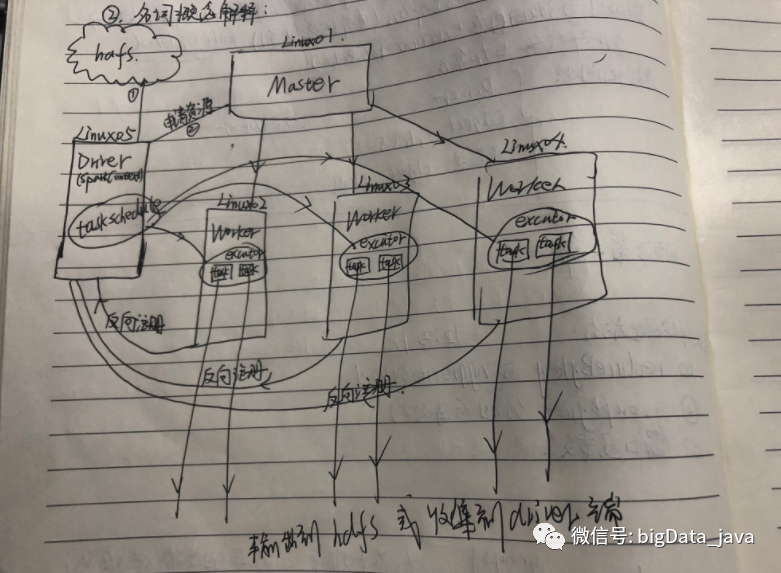 ②. 名词概念解释:
hdfs.
①
Linux01.
Master
申请资源
②
Linux05
Driver
(SparkContext)
taskschedule
Linux02
Worker
excutor
task task
Linux03
Worker
excutor
task task
Linux04
Worker
excutor
task task
反向注册
反向注册
反向注册
输出到 hdfs 或 收集到 driver 端
微信号: bigData_java